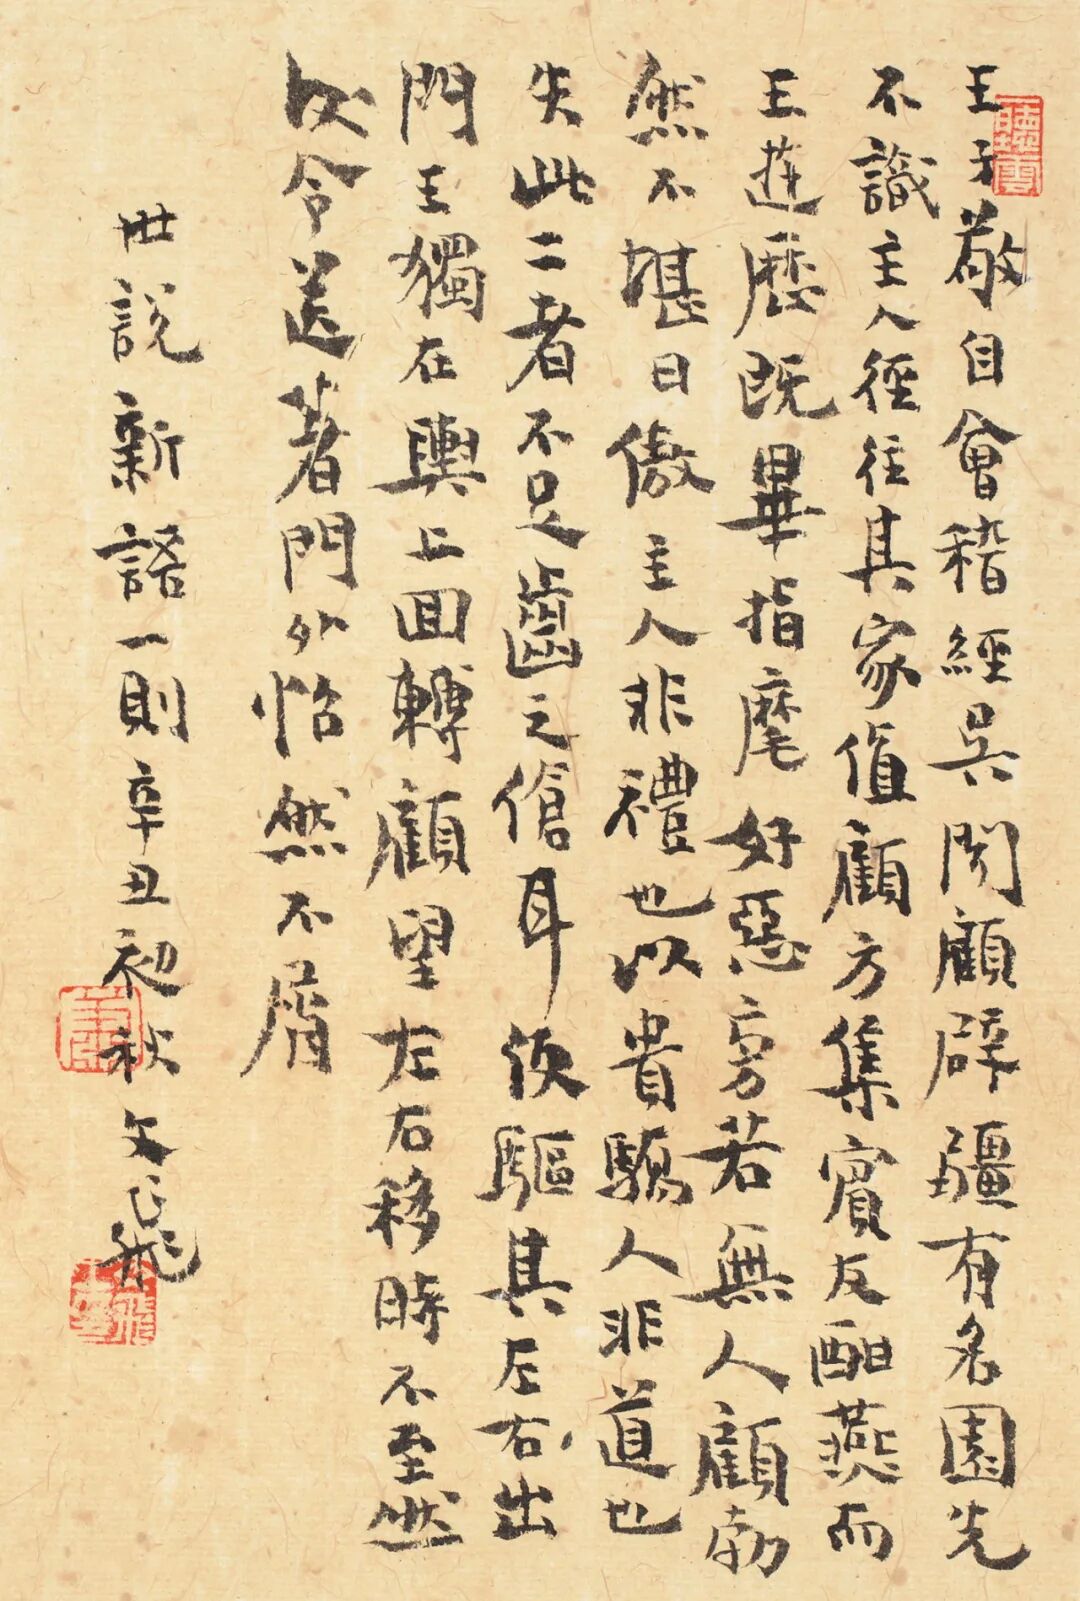 王子敬自會稽經吳聞顧辟疆有名園先
不識主人徑往其家值顧方集賓友酣燕而
王遊歷既畢指麾好惡旁若無人顧勃
然不堪曰傲主人非禮也以貴驕人非道也
失此二者不足齒之傖耳便驅其左右出
門王獨在輿上囬轉顧望左右移時不至然
後令送著門外怡然不屑
世說新語一則辛丑初秋文飛